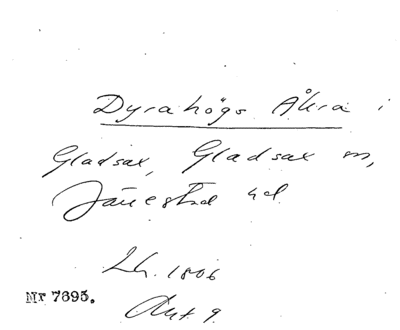 Dyrahögs Åkra i
Gladsax, Gladsax sn,
Järrestad hd.
Lh. 1806
Nr 7695.
Akt 9.